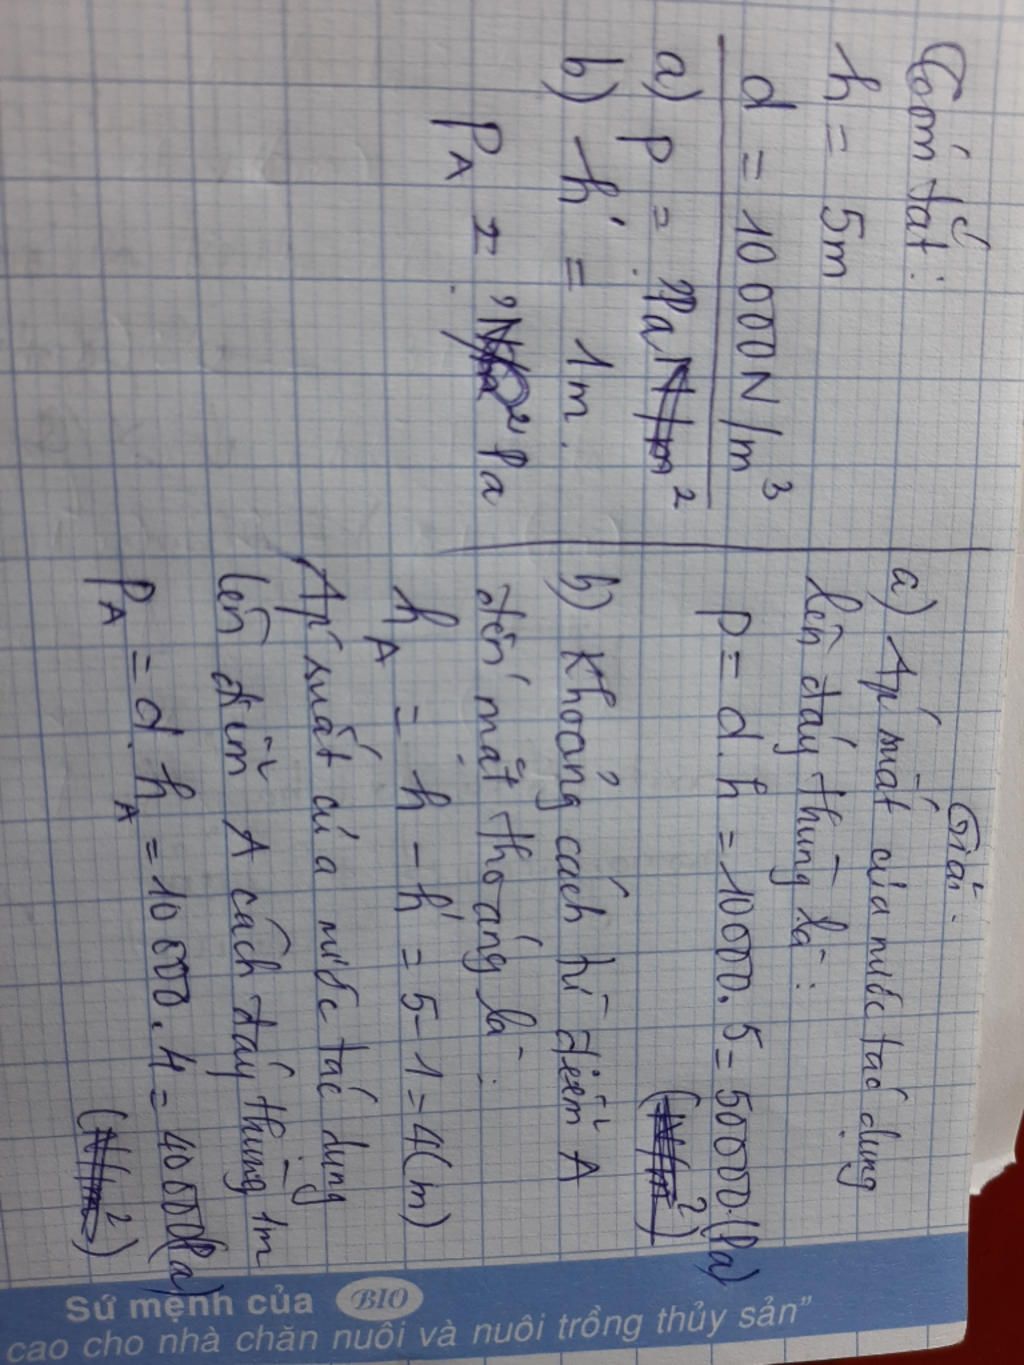 Tóm tắt:
h = 5m
d = 10000N/m³
a) p = ? Pa N/m²
b) h' = 1m.
P_A = ? Pa
Giải:
a) Áp suất của nước tác dụng
lên đáy thùng là:
p = d.h = 10000.5 = 50000 (Pa)
(N/m²)
b) Khoảng cách từ điểm A
đến mặt thoáng là:
h_A = h - h' = 5 - 1 = 4(m)
Áp suất của nước tác dụng
lên điểm A cách đáy thùng 1m
P_A = d.h_A = 10000.4 = 40000(Pa)
(N/m²)
Sứ mệnh của BIO
cao cho nhà chăn nuôi và nuôi trồng thủy sản"